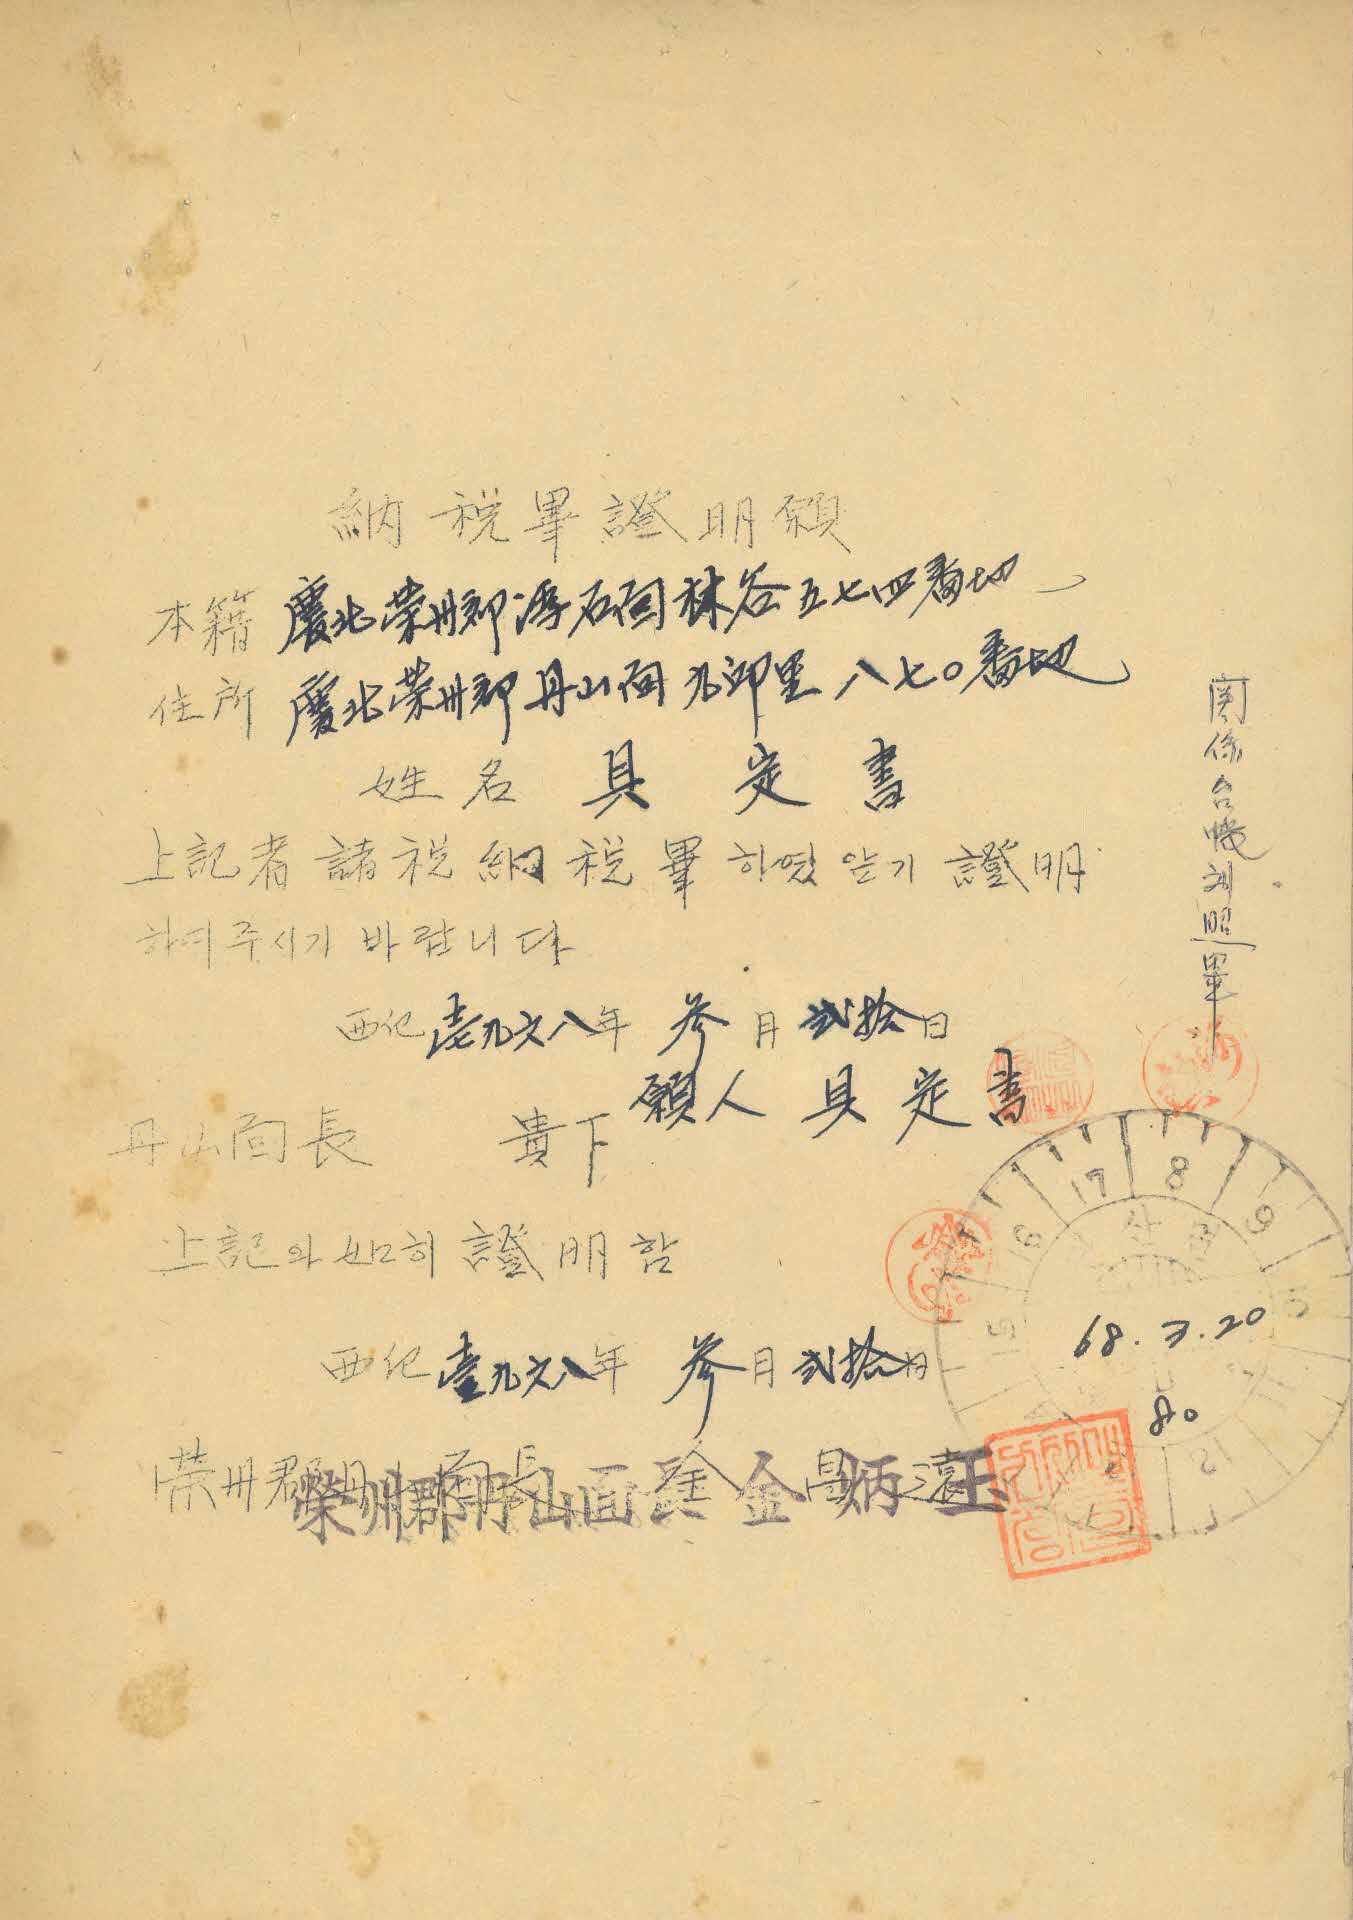 納稅畢證明願
本籍 慶北榮州郡浮石面林谷五七四番地
住所 慶北榮州郡丹山面九邱里八七〇番地
姓名 具定書
上記者 諸稅納稅畢하였앋기 證明
하여주시기 바랍니다
西紀壹九六八年 參月 貳拾日
願人 具定書
丹山面長 貴下
上記와如히 證明함
西紀壹九六八年 參月 貳拾日
榮州郡丹山面長
榮州郡丹山面長 金炳玉
関係台帳対照畢
17 8 9
16
15
산
68.3.20
80
12